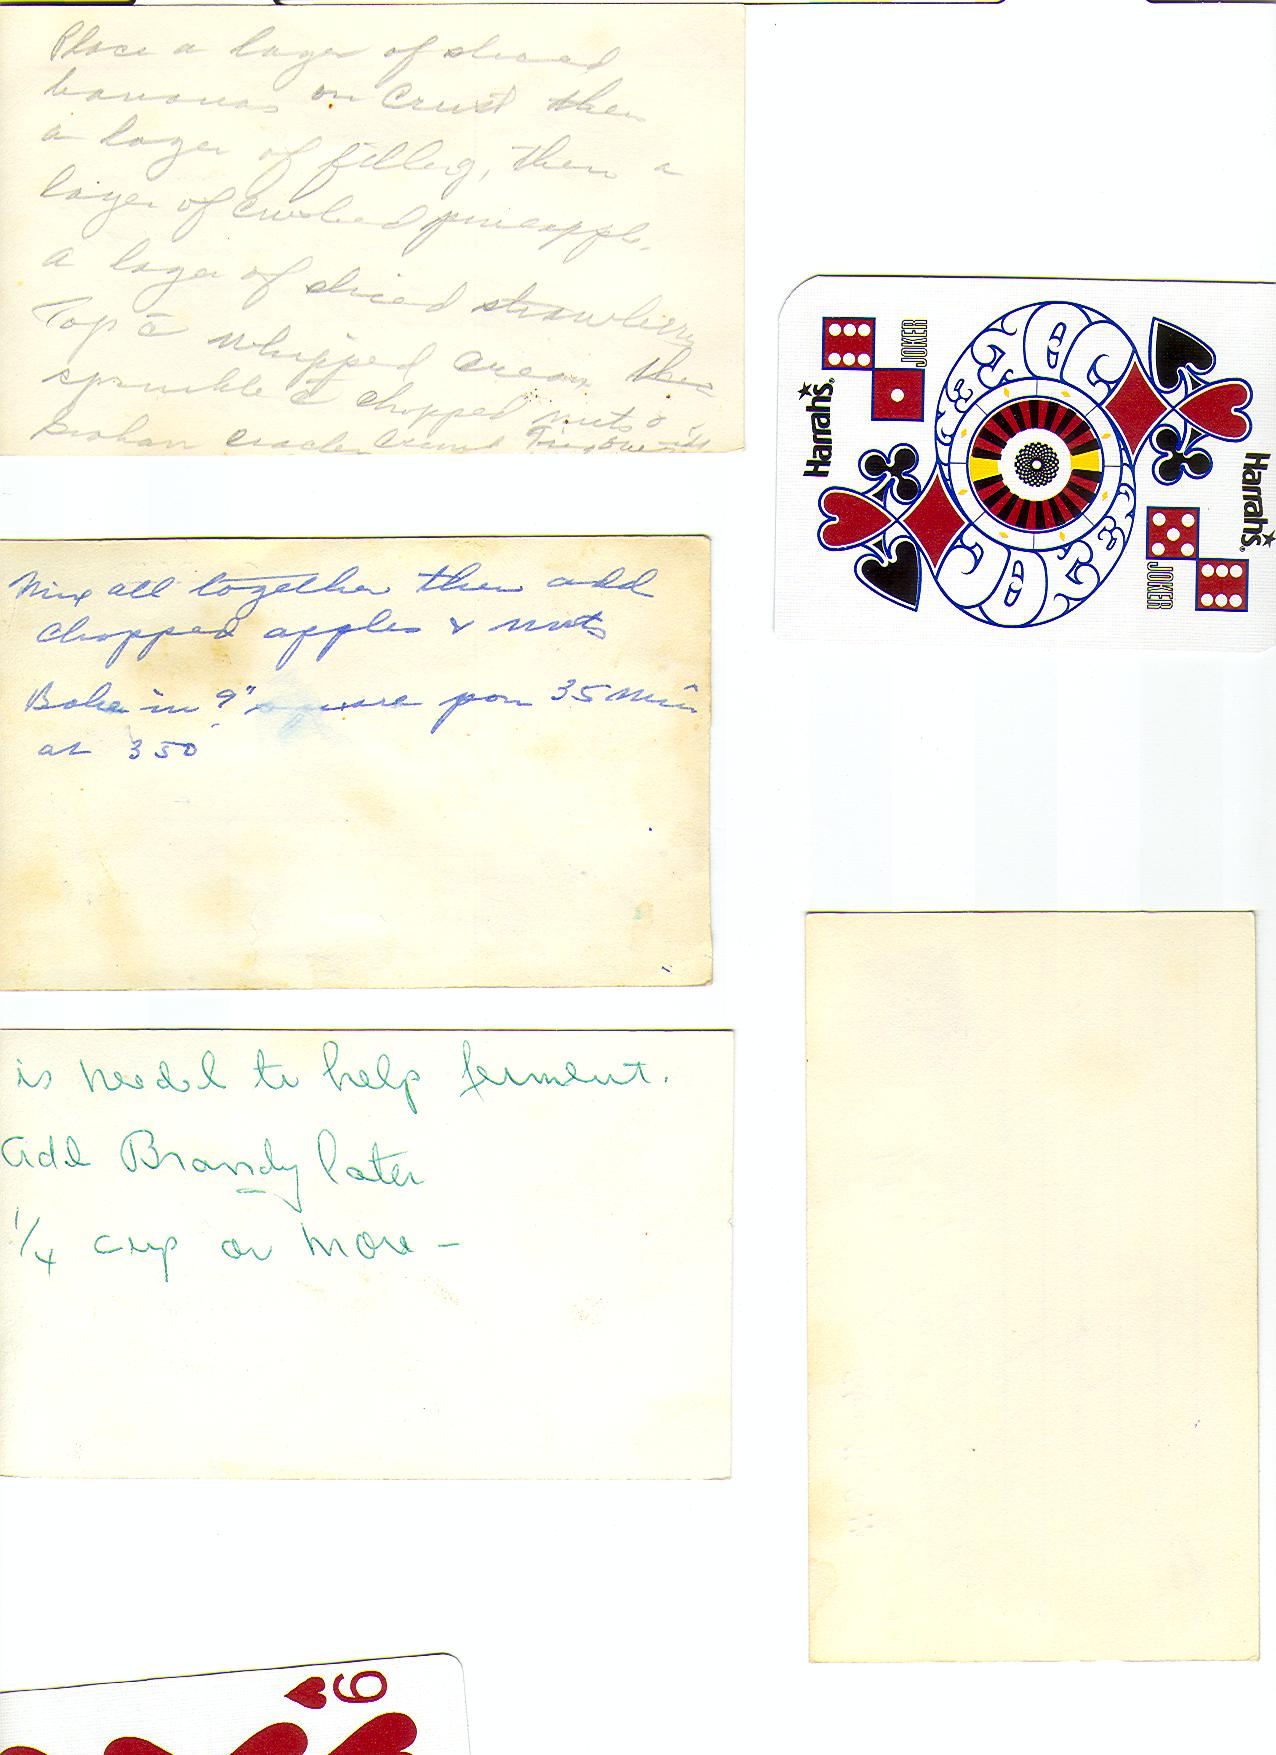 Place a layer of sliced
bananas on Crust then
a layer of filling, then a
layer of crushed pineapple.
a layer of sliced strawberries
Top c̄ whipped cream then
sprinkle c̄ chopped nuts
graham cracker crumb
Mix all together then add
chopped apples & nuts
Bake in 9" square pan 35 min
at 350°
is needed to help ferment.
add Brandy later
1/4 cup or more –
JOKER
Harrahs
Harrahs
JOKER
JOKER
JOKER
9